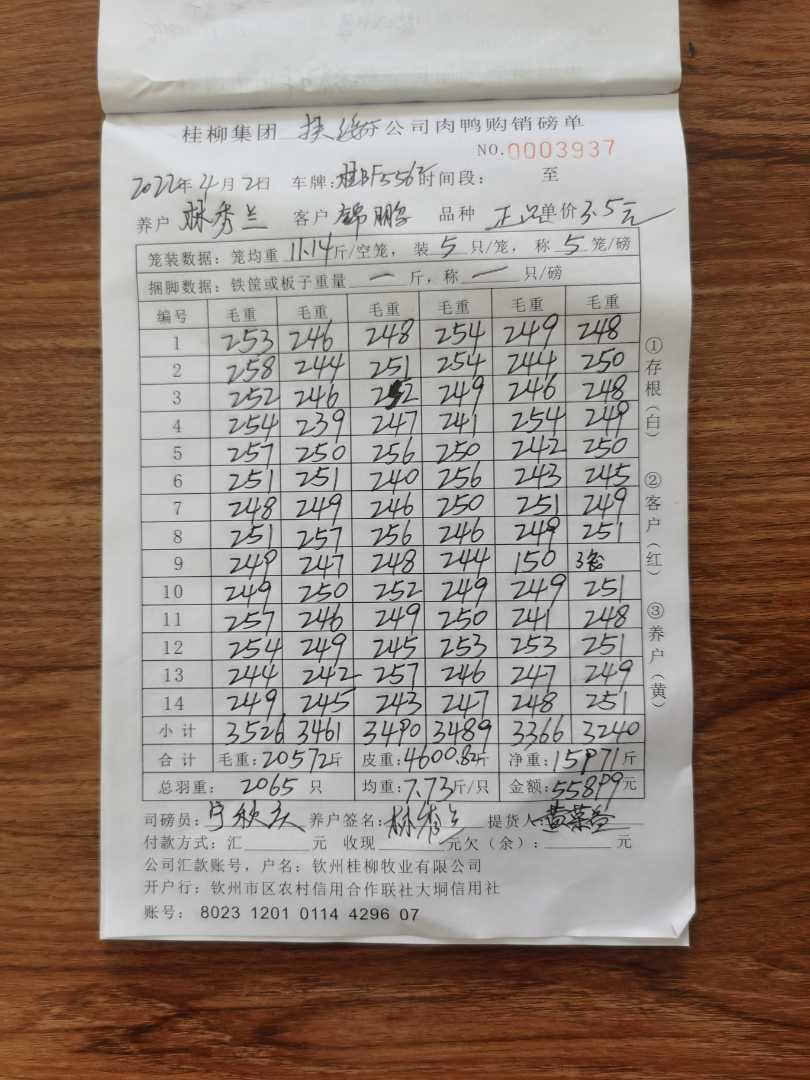 桂柳集团 扶绥分公司肉鸭购销磅单
NO.0003937
2022年4月2日 车牌:桂BF5563 时间段: 至
养户 林秀兰 客户 锦鹏 品种 正品 单价3.5元
笼装数据:笼均重 11.14斤/空笼,装 5 只/笼,称 5 笼/磅
捆脚数据:铁筐或板子重量 一 斤,称 一 只/磅
编号 毛重 毛重 毛重 毛重 毛重 毛重
1 253 246 248 254 249 248
2 258 244 251 254 244 250
3 252 246 252 249 246 248
4 254 239 247 241 254 249
5 257 250 256 250 242 250
6 251 251 240 256 243 245
7 248 249 246 250 251 249
8 251 257 256 246 249 251
9 249 247 248 244 150 3笼
10 249 250 252 249 249 251
11 257 246 249 250 241 248
12 254 249 245 253 253 251
13 244 242 257 246 247 249
14 249 245 243 247 248 251
小计 3526 3461 3490 3489 3366 3240
合计 毛重:20572斤 皮重:4600.82斤 净重:15971斤
总羽重: 2065 只 均重:7.73斤/只 金额:55899元
司磅员:宁秋庆 养户签名:林秀兰 提货人:黄荣
付款方式:汇 元 收现 元欠(余): 元
公司汇款账号,户名:钦州桂柳牧业有限公司
开户行:钦州市区农村信用合作联社大垌信用社
账号: 8023 1201 0114 4296 07
①存根(白) ②客户(红) ③养户(黄)